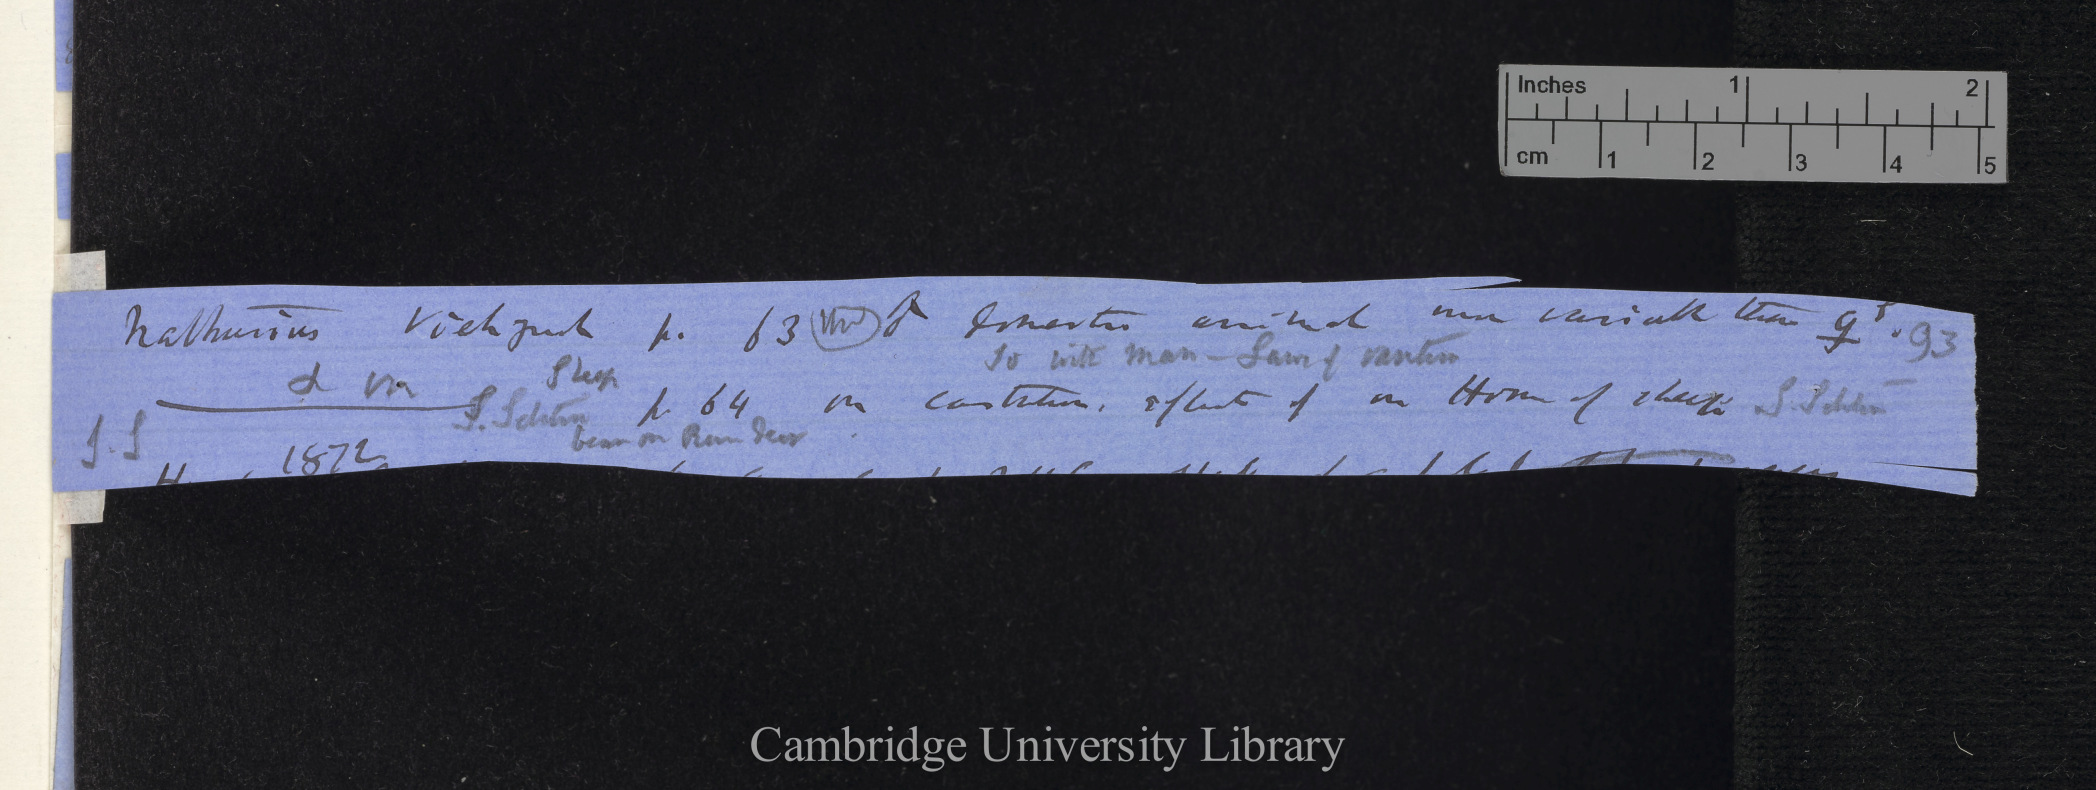 Inches 1 2
cm 1 2 3 4 5
Nathusius Viehzucht p. 63 ♂ domestic animal more variable than ♀s. 93
So with man — Law of variation
Sheep
S. Selection p. 64 on castration, effects of on Horns of sheep S. Selection
bears on Rein Deer
S.S
1872
Cambridge University Library